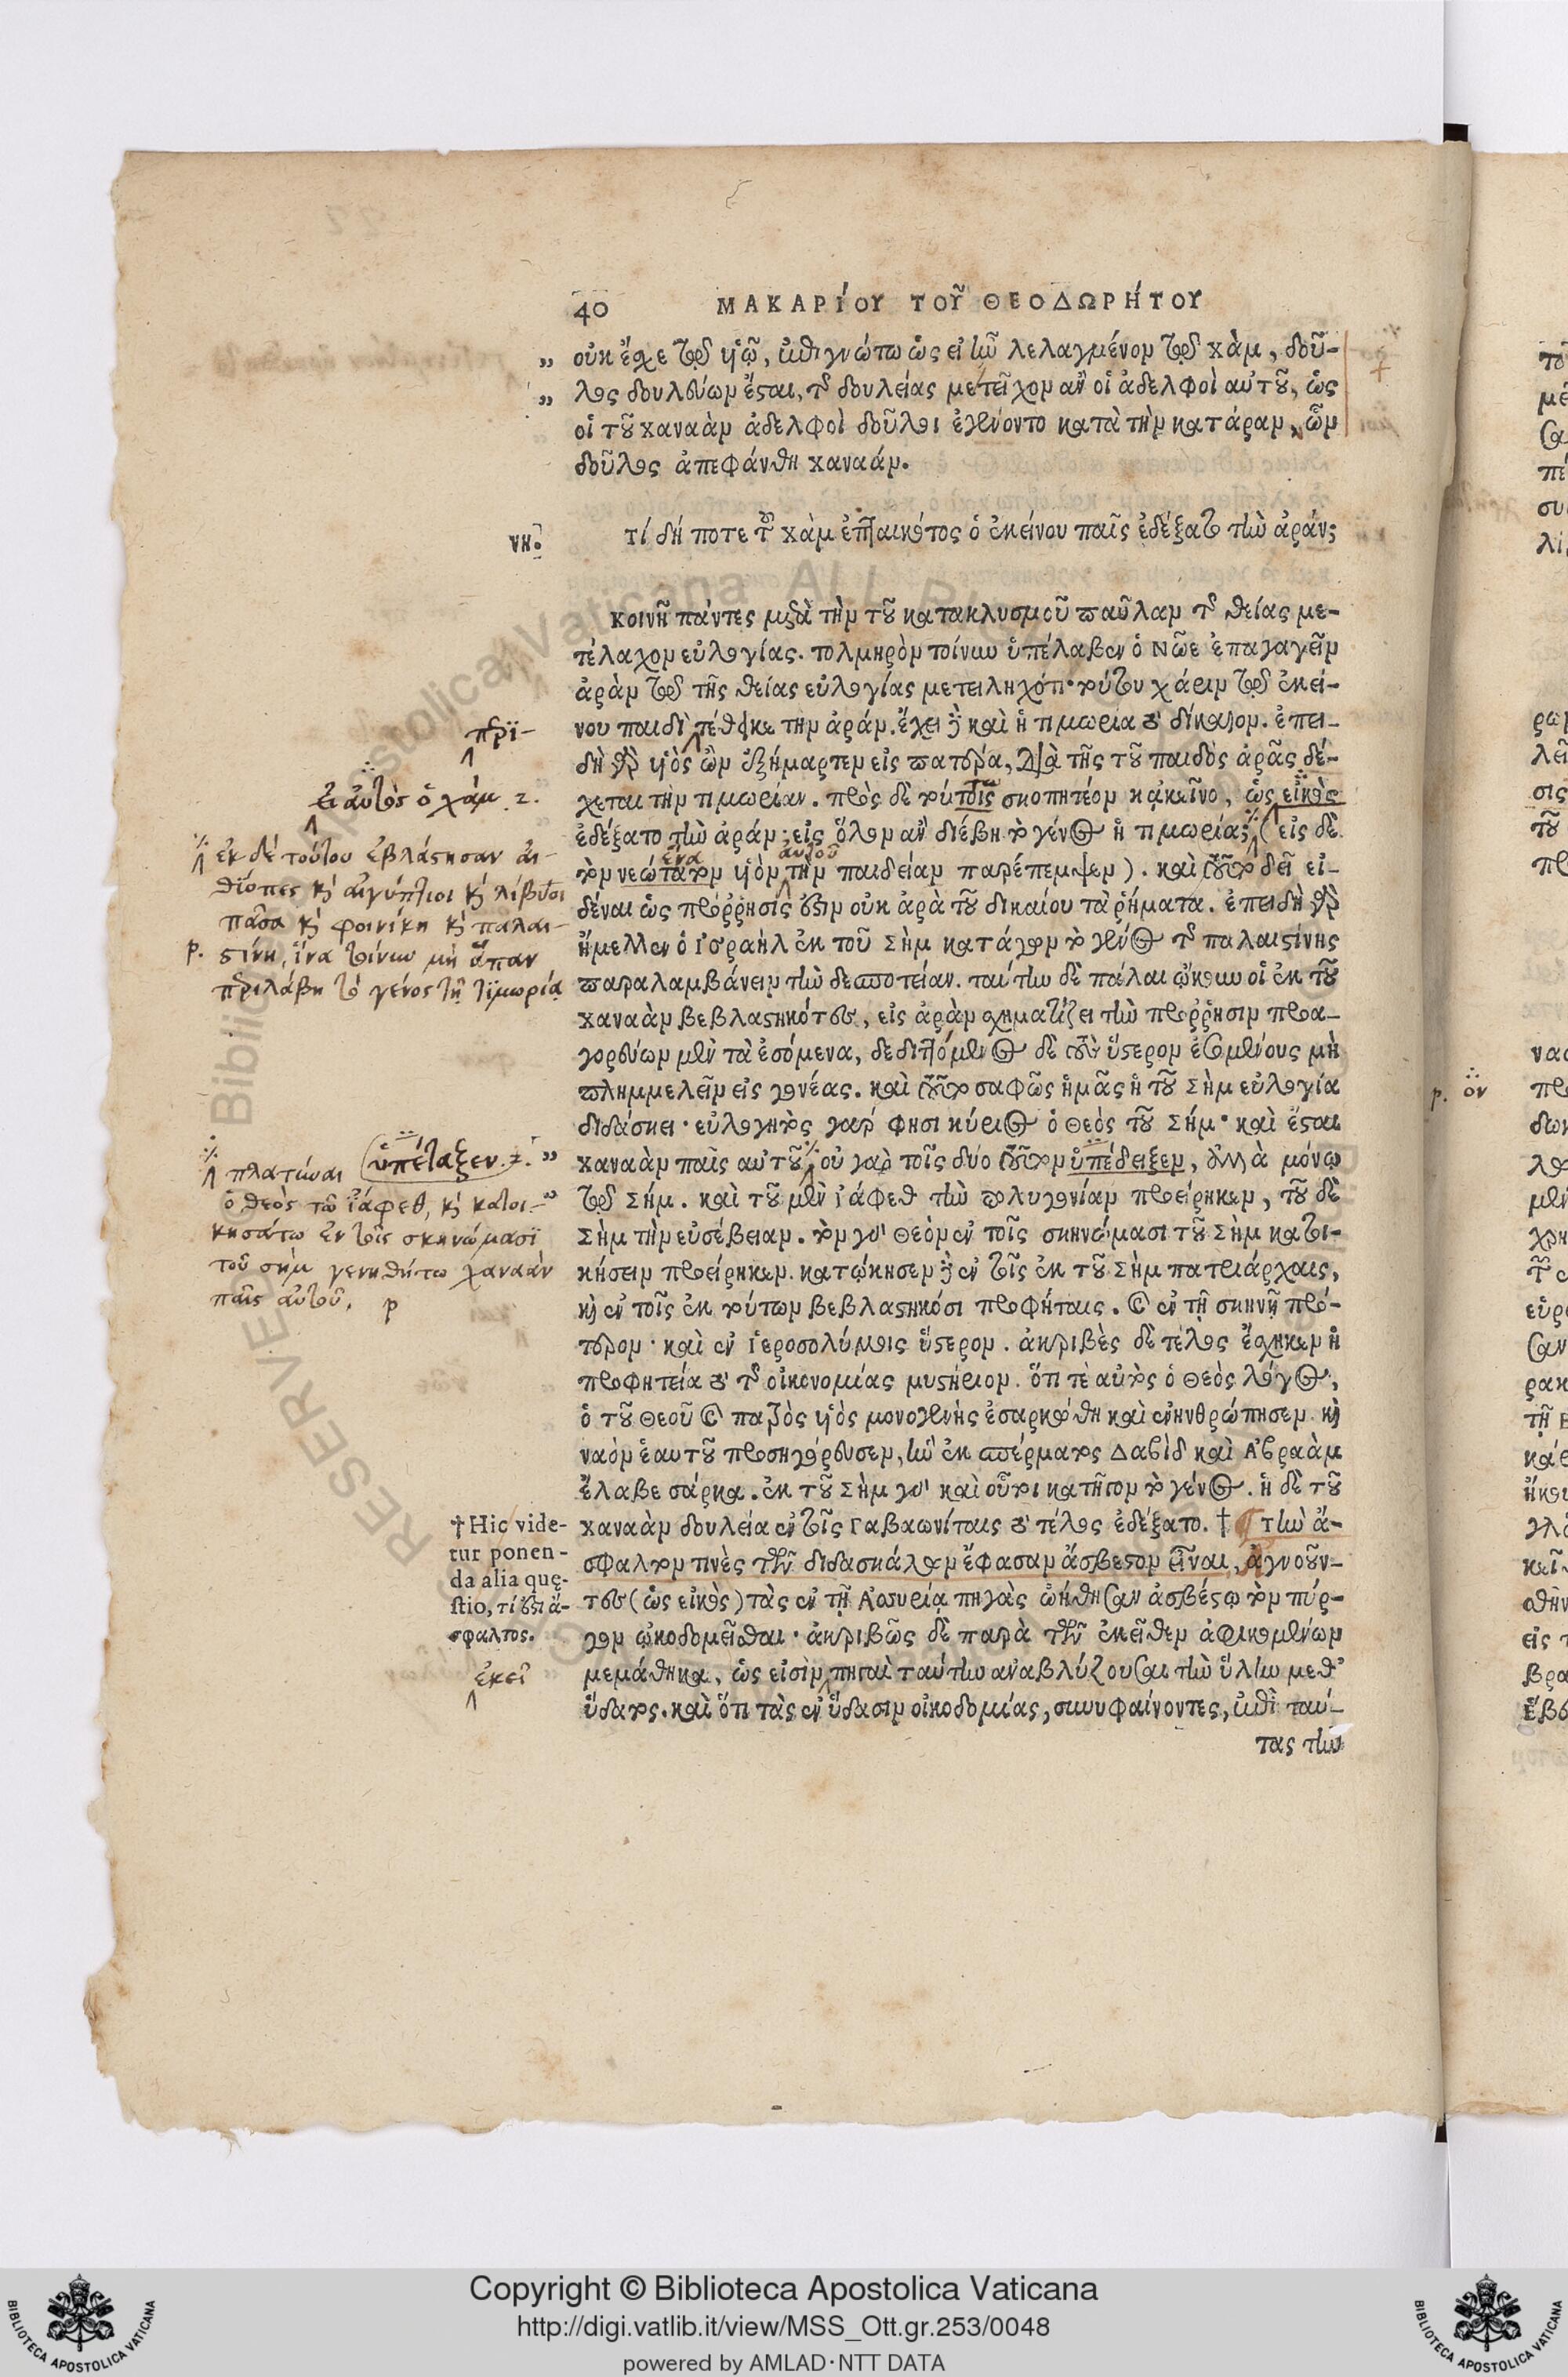 40 ΜΑΚΑΡίΟΥ ΤΟΥ͂ ΘΕΟΔΩΡήΤΟΥ
οὐκ ἔχε τῷ υἱῷ, ἐπιγνώτω ὡς εἰ ἦν λελαγμένον τῷ χὰμ, δοῦ-
λος δουλεύων ἔσαι, τῆς δουλείας μετεῖχον ἂν οἱ ἀδελφοὶ αὐτοῦ, ὡς
οἱ τοῦ χαναὰν ἀδελφοὶ δοῦλοι ἐγένοντο κατὰ τὴν κατάραν, ὧν
δοῦλος ἀπεφάνθη χαναάν.
νη. τί δή ποτε τοῦ χὰμ ἐπταικότος ὁ ἐκείνου παῖς ἐδέξατο τὴν ἀράν;
κοινῇ πάντες μετὰ τὴν τοῦ κατακλυσμοῦ παῦλαν τῆς θείας με-
τέλαχον εὐλογίας. τολμηρὸν τοίνυν ὑπέλαβεν ὁ Νῶε ἐπαγαγεῖν
ἀρὰν τῷ τῆς θείας εὐλογίας μετειληχότι· τούτου χάριν τῷ ἐκεί-
νου παιδὶ πέθηκε τὴν ἀράν. ἔχει δὲ καὶ ἡ τιμωρία τὸ δίκαιον. ἐπει-
πὲρϊ-
δὴ γὰρ υἱὸς ὢν ἐξήμαρτεν εἰς πατέρα, διὰ τῆς τοῦ παιδὸς ἀρᾶς δέ-
χεται τὴν τιμωρίαν. πρὸς δὲ τούτοις σκοπητέον κἀκεῖνο, ὡς εἰκὸς
εἰ αὐτὸς ὁ χάμ. 2.
ἐδέξατο τὴν ἀράν· εἰς ὅλον ἂν διέβη τὸ γένος ἡ τιμωρία; (εἰς δὲ
τὸν νεώτατον υἱὸν τὴν παιδείαν παρέπεμψεν). καὶ τοῦτο δεῖ εἰ-
ἕνα αὐτοῦ
δέναι ὡς πρόῤῥησίς ἐστιν οὐκ ἀρὰ τοῦ δικαίου τὰ ῥήματα. ἐπειδὴ γὰρ
ἤμελλεν ὁ Ισραὴλ ἐκ τοῦ Σὴμ κατάγων τὸ γένος τῆς παλαιστίνης
παραλαμβάνειν τὴν δεσποτείαν. ταύτην δὲ πάλαι ᾤκουν οἱ ἐκ τοῦ
χαναὰν βεβλαστηκότες, εἰς ἀρὰν σχηματίζει τὴν πρόῤῥησιν προα-
ἐκ δέ τούτου ἐβλάστησαν αἰ-
θϊόπες κỳ αἰγύπτιοι κỳ λίβυες
πᾶσα κỳ φοινίκη κỳ παλαι-
ρ. στίνη, ἵνα τοίνυν μὴ ἅπαν
περιλάβη τὸ γένος τῇ τϊμωρίᾳ
γορεύων μὲν τὰ ἐσόμενα, δεδιττόμενος δὲ τοὺς ὕστερον ἐσομένους μὴ
πλημμελεῖν εἰς γονέας. καὶ τοῦτο σαφῶς ἡμᾶς ἡ τοῦ Σὴμ εὐλογία
διδάσκει· εὐλογητὸς γάρ φησι κύριος ὁ Θεὸς τοῦ Σήμ· καὶ ἔσται
χαναὰν παῖς αὐτοῦ· οὐ γὰρ τοῖς δύο τοῦτον ὑπέδειξεν, ἀλλὰ μόνῳ
ὑπέταξεν. 2.
τῷ Σήμ. καὶ τοῦ μὲν ἰάφεθ τὴν πολυγονίαν προείρηκεν, τοῦ δὲ
Σὴμ τὴν εὐσέβειαν. τὸν γὰρ Θεὸν ἐν τοῖς σκηνώμασι τοῦ Σὴμ κατοι-
κήσειν προείρηκεν. κατῴκησεν δὲ ἐν τοῖς ἐκ τοῦ Σὴμ πατριάρχαις,
πλατύναι
ὁ θεὸς τῶ ἰάφεθ, κỳ κατοι-
κησάτω ἐν τοῖς σκηνώμασϊ
τοῦ σὴμ γενηθήτω χαναὰν
παῖς αὐτοῦ. ρ
κỳ ἐν τοῖς ἐκ τούτων βεβλαστηκόσι προφήταις. καὶ ἐν τῇ σκηνῇ πρό-
τερον· καὶ ἐν ἱεροσολύμοις ὕστερον. ἀκριβὲς δὲ τέλος ἔσχηκεν ἡ
προφητεία τὸ τῆς οἰκονομίας μυστήριον. ὅτι τὲ αὐτὸς ὁ Θεὸς λόγος,
ὁ τοῦ Θεοῦ καὶ πατρὸς υἱὸς μονογενὴς ἐσαρκώθη καὶ ἐνηνθρώπησεν. κỳ
ναὸν ἑαυτοῦ προσηγόρευσεν, ἣν ἐκ σπέρματος Δαβὶδ καὶ Ἀβραὰμ
ἔλαβε σάρκα. ἐκ τοῦ Σὴμ γὰρ καὶ οὗτοι κατῆγον τὸ γένος. ἡ δὲ τοῦ
χαναὰν δουλεία ἐν τοῖς Γαβαωνίταις τὸ τέλος ἐδέξατο. † τὴν ἄ-
σφαλτον τινὲς τῶν διδασκάλων ἔφασαν ἄσβεστον εἶναι, ἀγνοοῦν-
τες (ὡς εἰκὸς) τὰς ἐν τῇ Ἀσσυρίᾳ πηγὰς ᾠήθησαν ἀσβέστῳ τὸν πύρ-
γον ᾠκοδομεῖσθαι· ἀκριβῶς δὲ παρὰ τῶν ἐκεῖθεν ἀφικομένων
†Hic vide-
tur ponen-
da alia quę-
stio, τί ἐστι ἄ-
σφαλτος.
μεμάθηκα, ὡς εἰσὶν πηγαὶ ταύτην ἀναβλύζουσαι τὴν ὕλην μεθ’
ἐκεῖ
ὕδατος. καὶ ὅτι τὰς ἐν ὕδασιν οἰκοδομίας, συνυφαίνοντες, ἐπὶ ταύ-
τας τὴν
ρ. ὃν
Copyright © Biblioteca Apostolica Vaticana
http://digi.vatlib.it/view/MSS_Ott.gr.253/0048
powered by AMLAD·NTT DATA
BIBLIOTECA APOSTOLICA VATICANA
BIBLIOTECA APOSTOLICA VATICANA